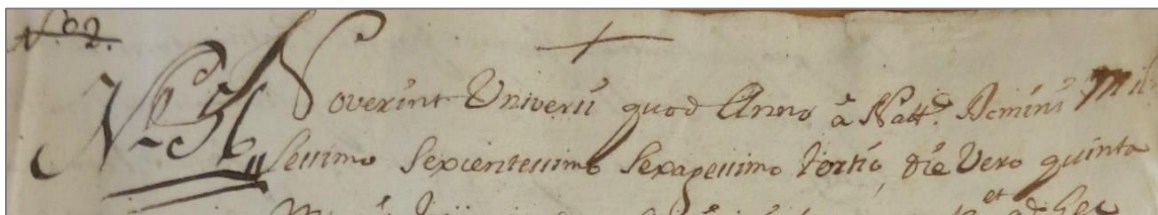 N. 02.
Noverint Universi quod Anno à Natt.e Domini Mil-
lessimo Sexcentessimo Sexagessimo tertio, die Vero quinta
et